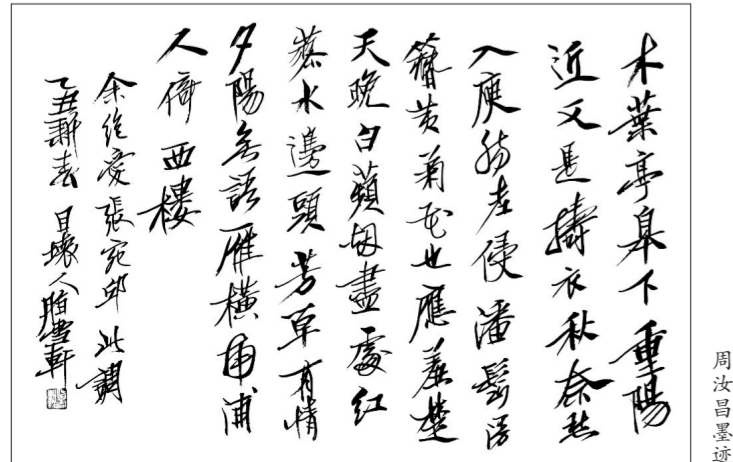 木葉亭皋下重陽
近又是擣衣秋奈愁
入庾腸老侵潘鬢謾
簪黄菊花也應羞楚
天晚白蘋烟盡處红
蓼水邊頭芳草有情
夕陽無語雁橫南浦
人倚西樓
余絶愛張宛邱此調
乙丑新春 目壞人脂雪軒
周汝昌墨迹